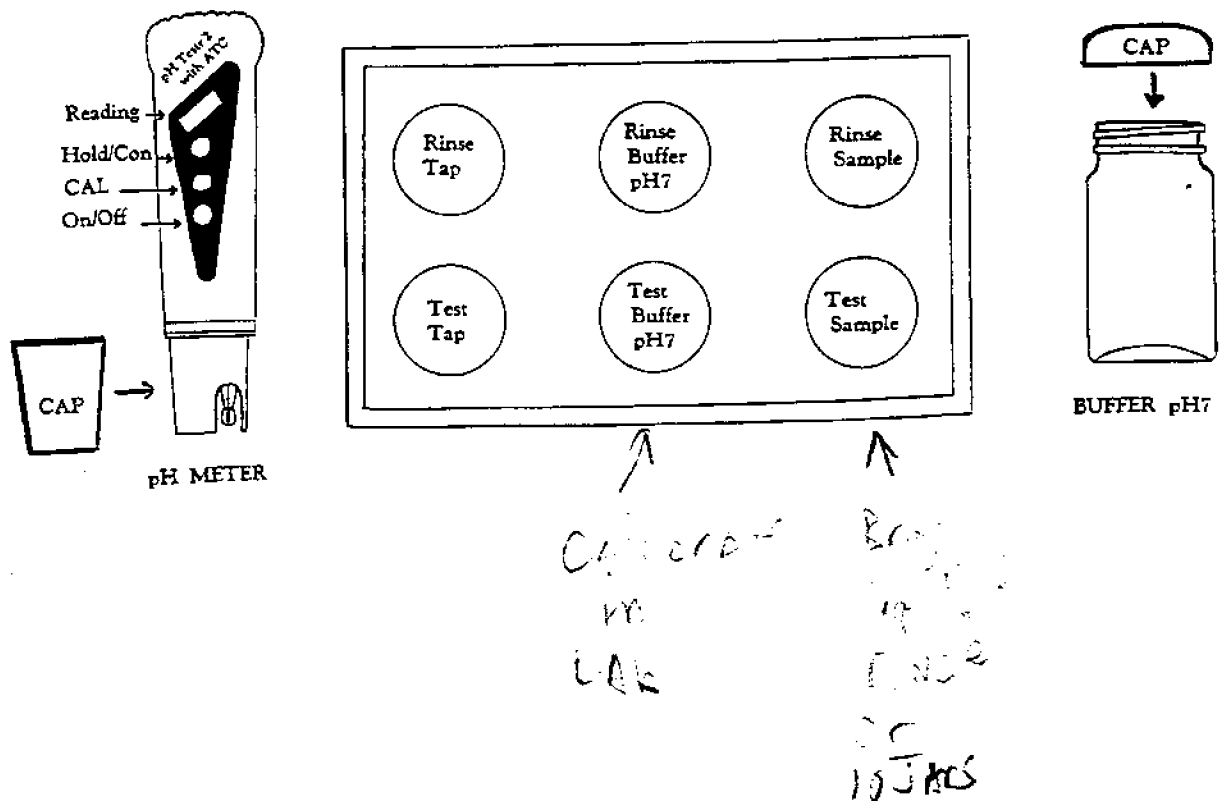 pH Testr2
with ATC
Reading
Hold/Con
CAL
On/Off
CAP
pH METER
Rinse
Tap
Rinse
Buffer
pH7
Rinse
Sample
Test
Tap
Test
Buffer
pH7
Test
Sample
CAP
BUFFER pH7
in
LAB
JARS